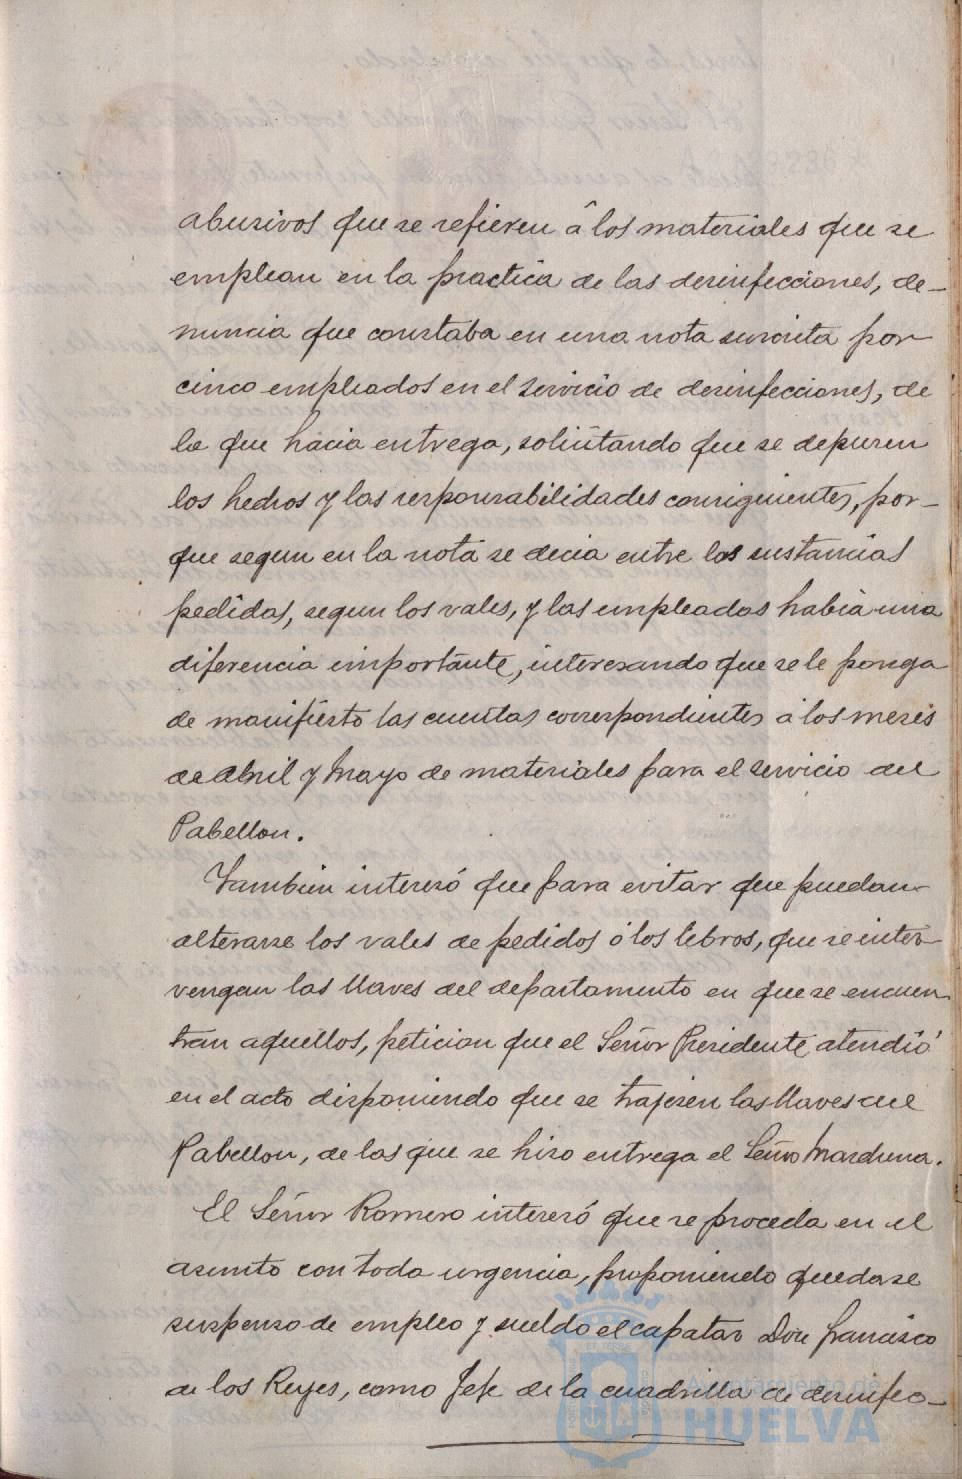 abusivos que se refieren á los materiales que se
emplean en la practica de las desinfecciones, de-
nuncia que constaba en una nota suscrita por
cinco empleados en el servicio de desinfecciones, de
la que hacia entrega, solicitando que se depuren
los hechos y las responsabilidades consiguientes, por-
que segun en la nota se decia entre las sustancias
pedidas, segun los vales, y las empleadas habia una
diferencia importante, interesando que se le ponga
de manifiesto las cuentas correspondientes á los meses
de Abril y Mayo de materiales para el servicio del
Pabellon.
Tambien interesó que para evitar que puedan
alterarse los vales de pedidos ó los libros, que se inter-
vengan las llaves del departamento en que se encuen
tran aquellos, peticion que el Señor Presidente atendió
en el acto disponiendo que se trajesen las llaves del
Pabellon, de las que se hizo entrega el Señor
El Señor Romero interesó que se proceda en el
asunto con toda urgencia, proponiendo quedase
suspenso de empleo y sueldo el capataz Don Francisco
de los Reyes, como Jefe de la cuadrilla de desinfec-
Ayuntamiento de
HUELVA